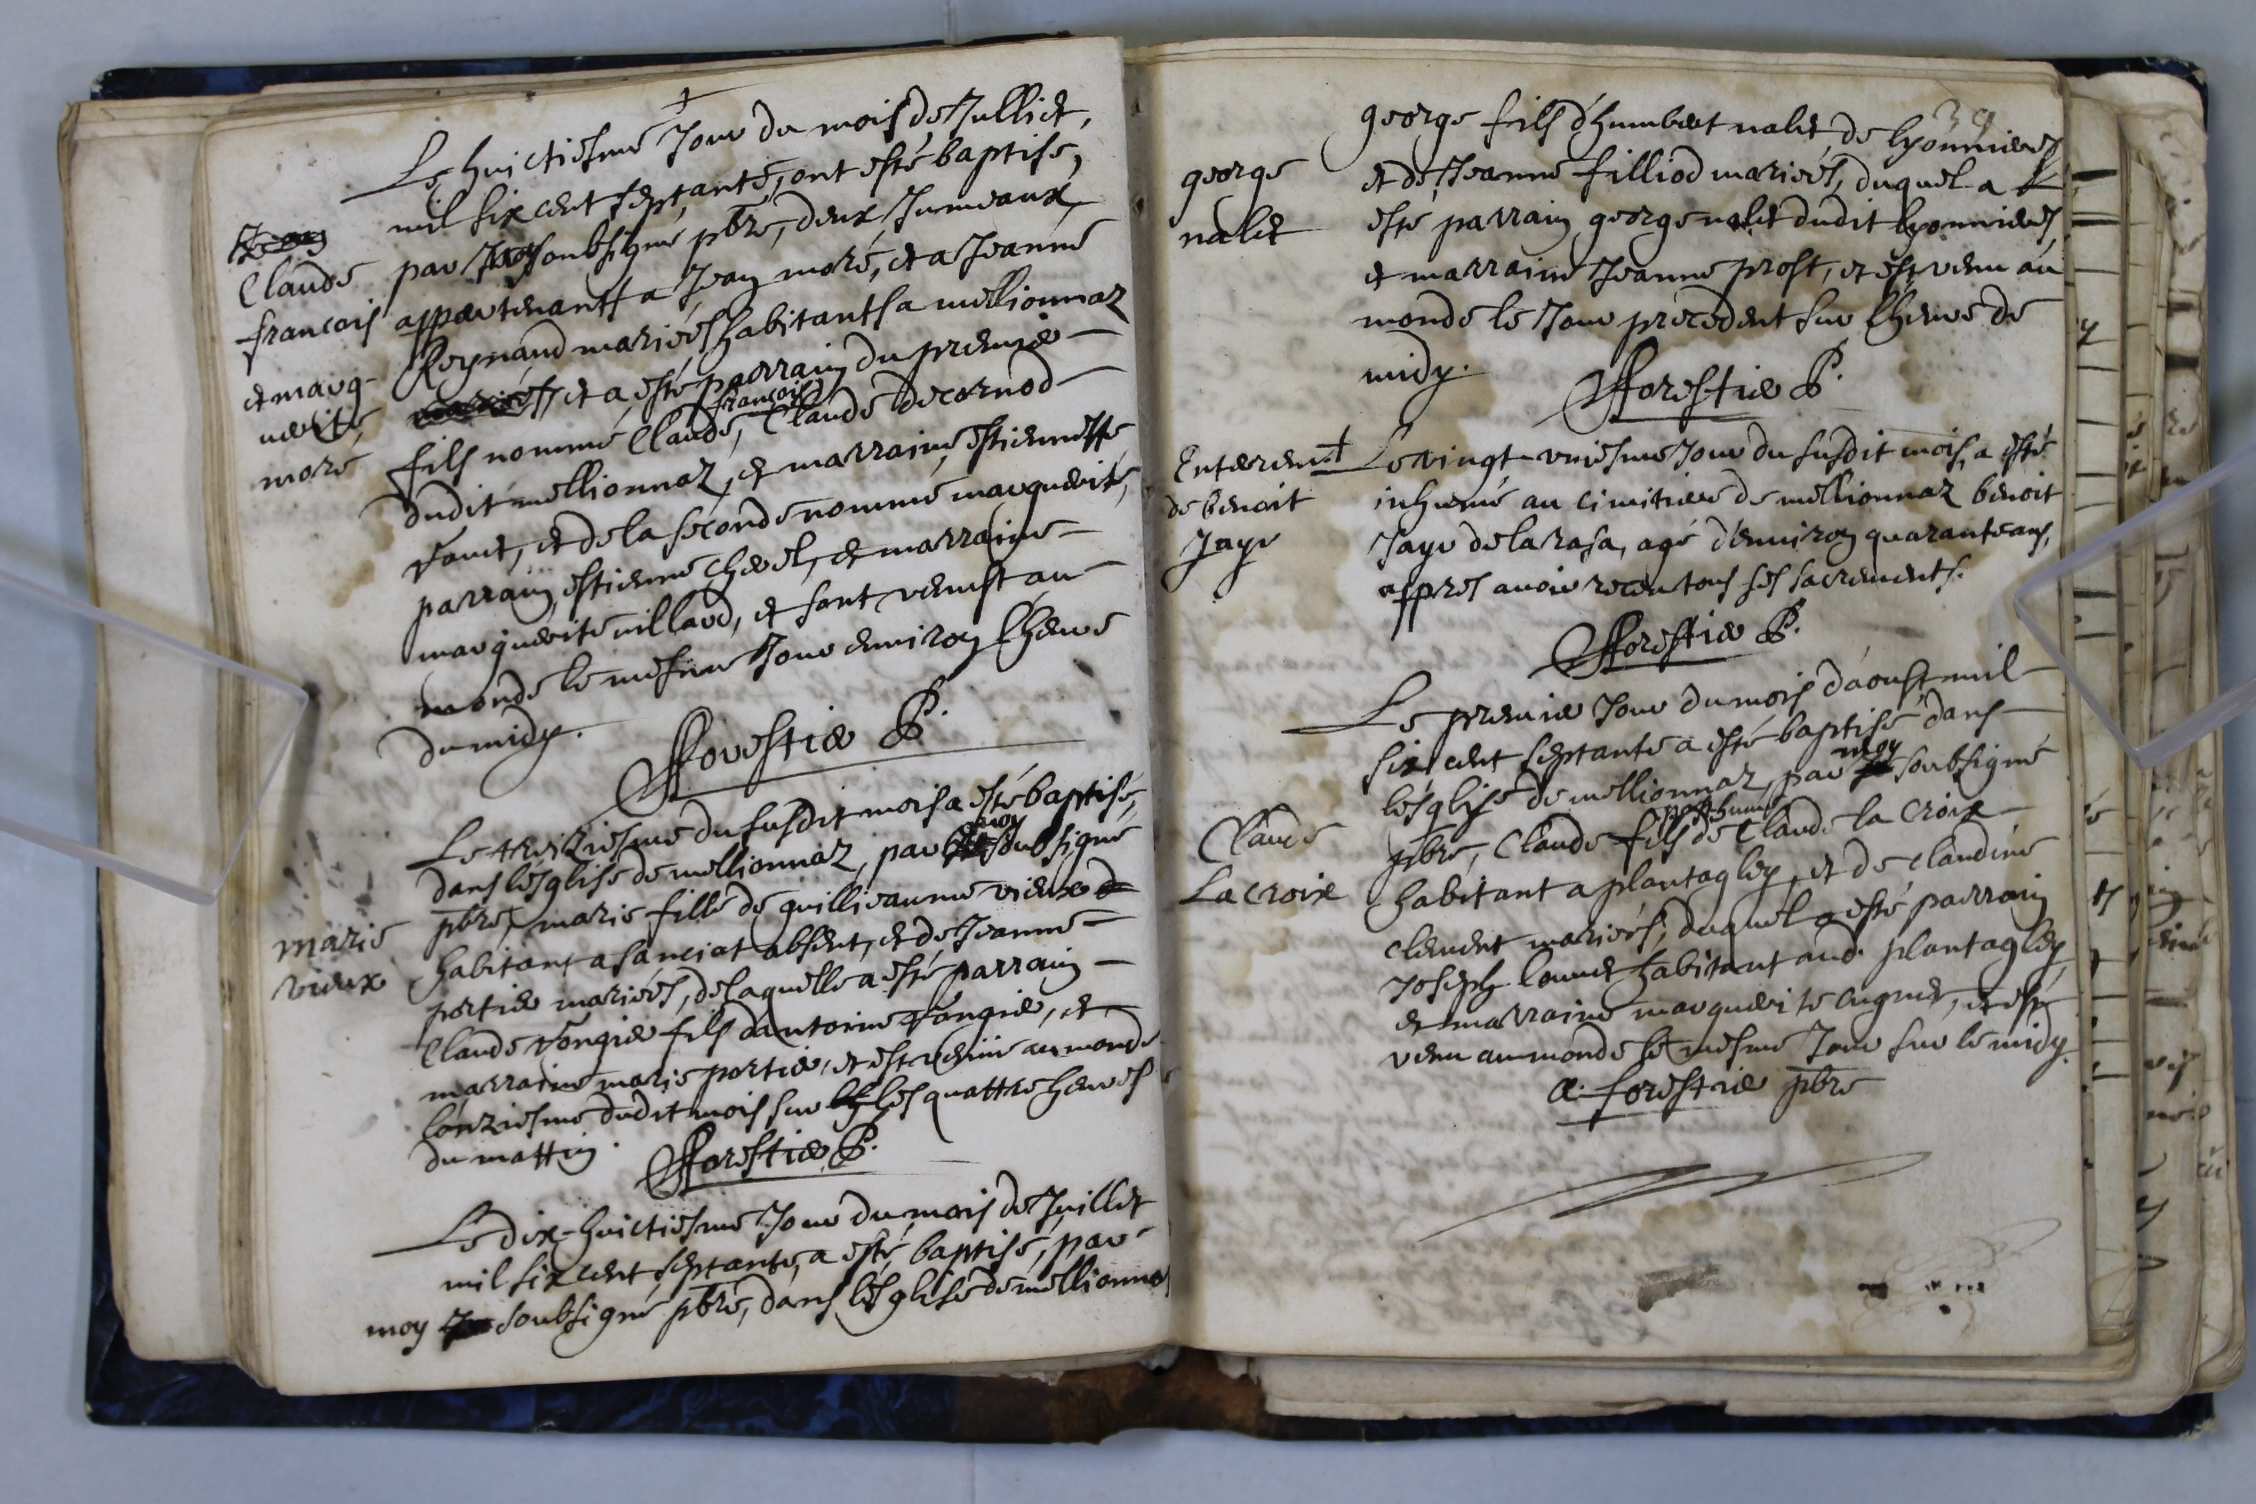 Le huictiesme Jour du mois de Julliet,
mil six cent septante, ont esté baptisé,
par moy soubsigné pbre, deux Jumeaux,
appartenants a Jean moré, et a Jeanne
Reynaud mariés habitants a mellionnaz
et a esté parrain du premier
fils nommé Claude, françois Claude decornod
dudit mellionnaz, et marraine estiennette
et de la seconde nommé marguerite,
parrain estienne et marraine
marguerite villard, et sont venust au
monde le mesme Jour environ lheure
du midy.
fforestier P.
Claude
francois
et marg-
uerite
moré
Le treiziesme du susdit mois a esté baptisé,
dans lesglise de mellionnaz, par moy soubsigné
pbre, marie fille de guillieaume vieux
habitant a sanciat absent, et de Jeanne
portier mariés, de laquelle a esté parrain
Claude fils dantoine et
marraine marie portier, et est venue au monde
lonziesme dudit mois sur les quattre heures
du mattin.
fforestier P.
marie
vieux
Le dix-huictiesme Jour du mois de Juillet
mil six cent septante, a esté baptisé, par
moy soubsigné pbre, dans lesglise de mellionna
39
george fils d'humbert nalet, de lyonnieres
et de Jeanne filliod mariés, duquel a
esté parrain george nalet dudit lyonnieres
et marraine Jeanne prost, et est venu au
monde le Jour precedent sur lheure de
midy.
fforestier P.
george
nalet
Enterem.t
de benoit
Jayr
Le vingt-uniesme Jour du susdit mois, a esté
inhumé au cimitiere de mellionnaz benoit
Jayr de la rasa, agé d'environ quarante ans,
appres avoir receu tous ses sacrements.
fforestier P.
Le premier Jour du mois d'aoust mil
six cent septante a esté baptisé dans
lesglise de mellionnaz, par moy soubsigné
pbre, Claude fils posthume de Claude la Croix
habitant a plantagley, et de claudine
clement mariés, duquel a esté parrain
Joseph habitant aud. plantagley,
et marraine marguerite et est
venu au monde le mesme Jour sur le midy.
a. forestier pbre
Claude
La croix